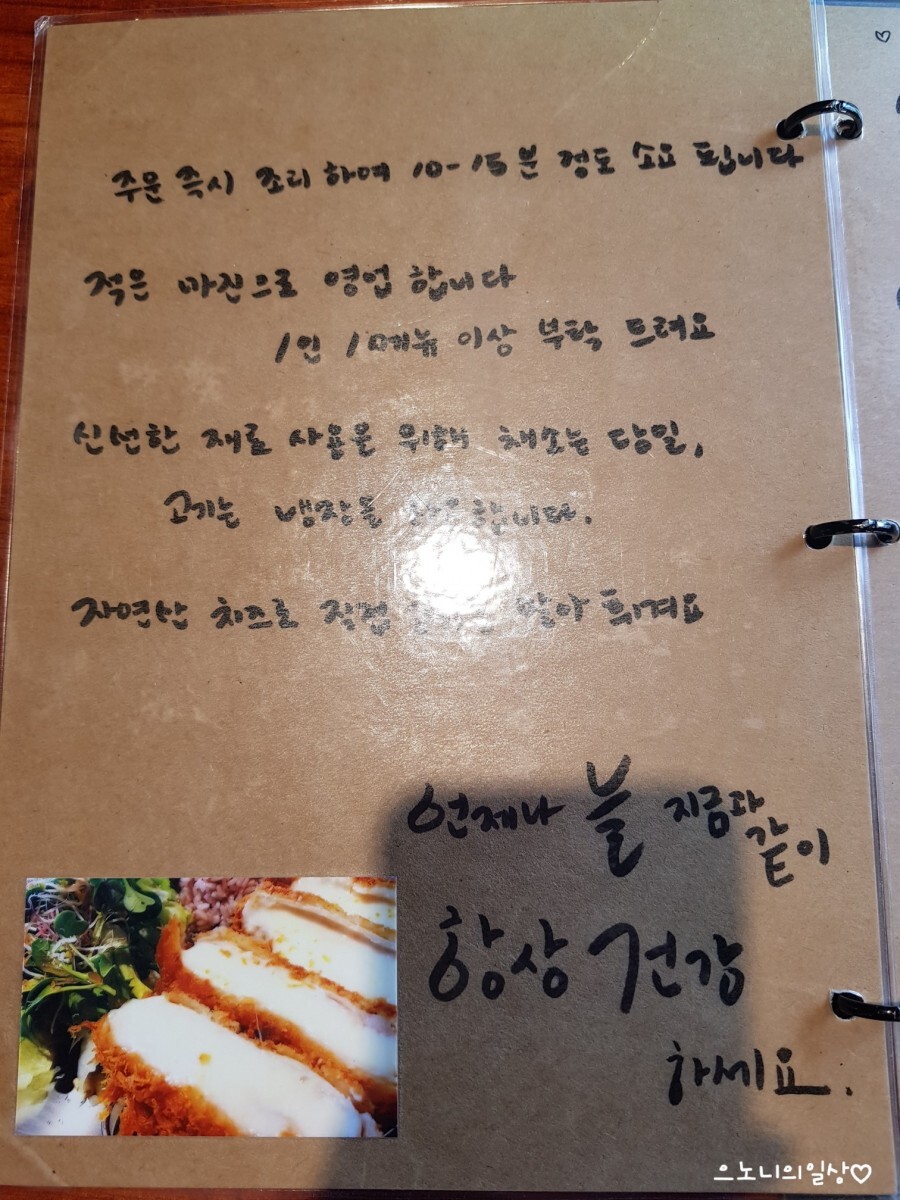 주문 즉시 조리 하여 10-15분 정도 소요 됩니다
적은 마진으로 영업 합니다
1인 1메뉴 이상 부탁 드려요
신선한 재료 사용을 위해 채소는 당일,
고기는 냉장을 사용합니다.
자연산 치즈로 직접 말아 튀겨요
언제나 늘 지금과 같이
항상 건강
하세요.
으노니의일상♡